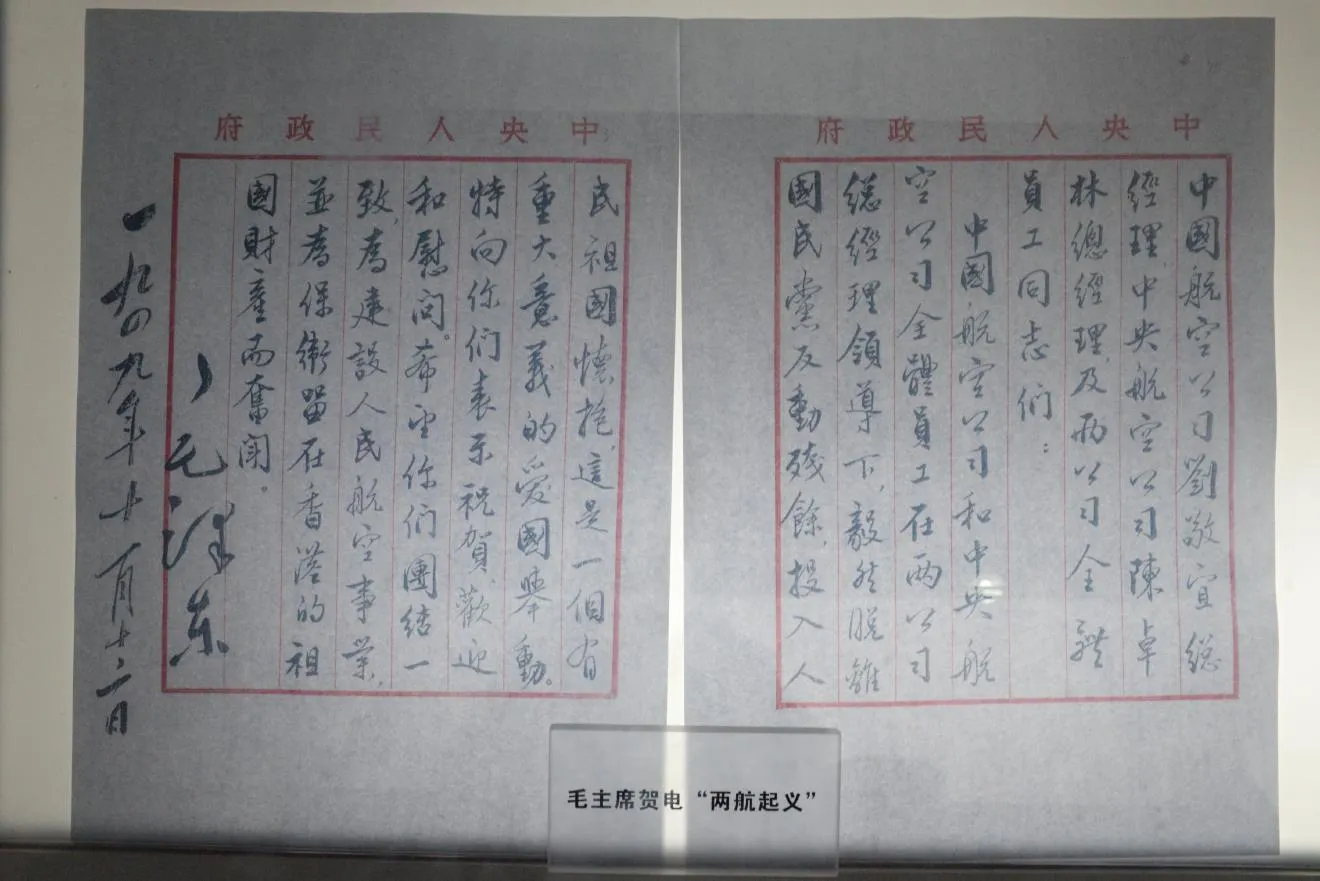 中央人民政府
中國航空公司劉敬宜總
經理,中央航空公司陳卓
林總經理,及兩公司全體
員工同志们:
中國航空公司和中央航
空公司全體員工在两公司
總經理領導下,毅然脱離
國民黨反動殘餘,投入人
中央人民政府
民祖國懷抱,這是一個有
重大意義的愛國舉動。
特向你们表示祝賀,歡迎
和慰问。希望你们團结一
致,為建設人民航空事業,
並為保衛留在香港的祖
國財產而奮闘。
毛泽东
一九四九年十一月十二日
毛主席贺电“两航起义”